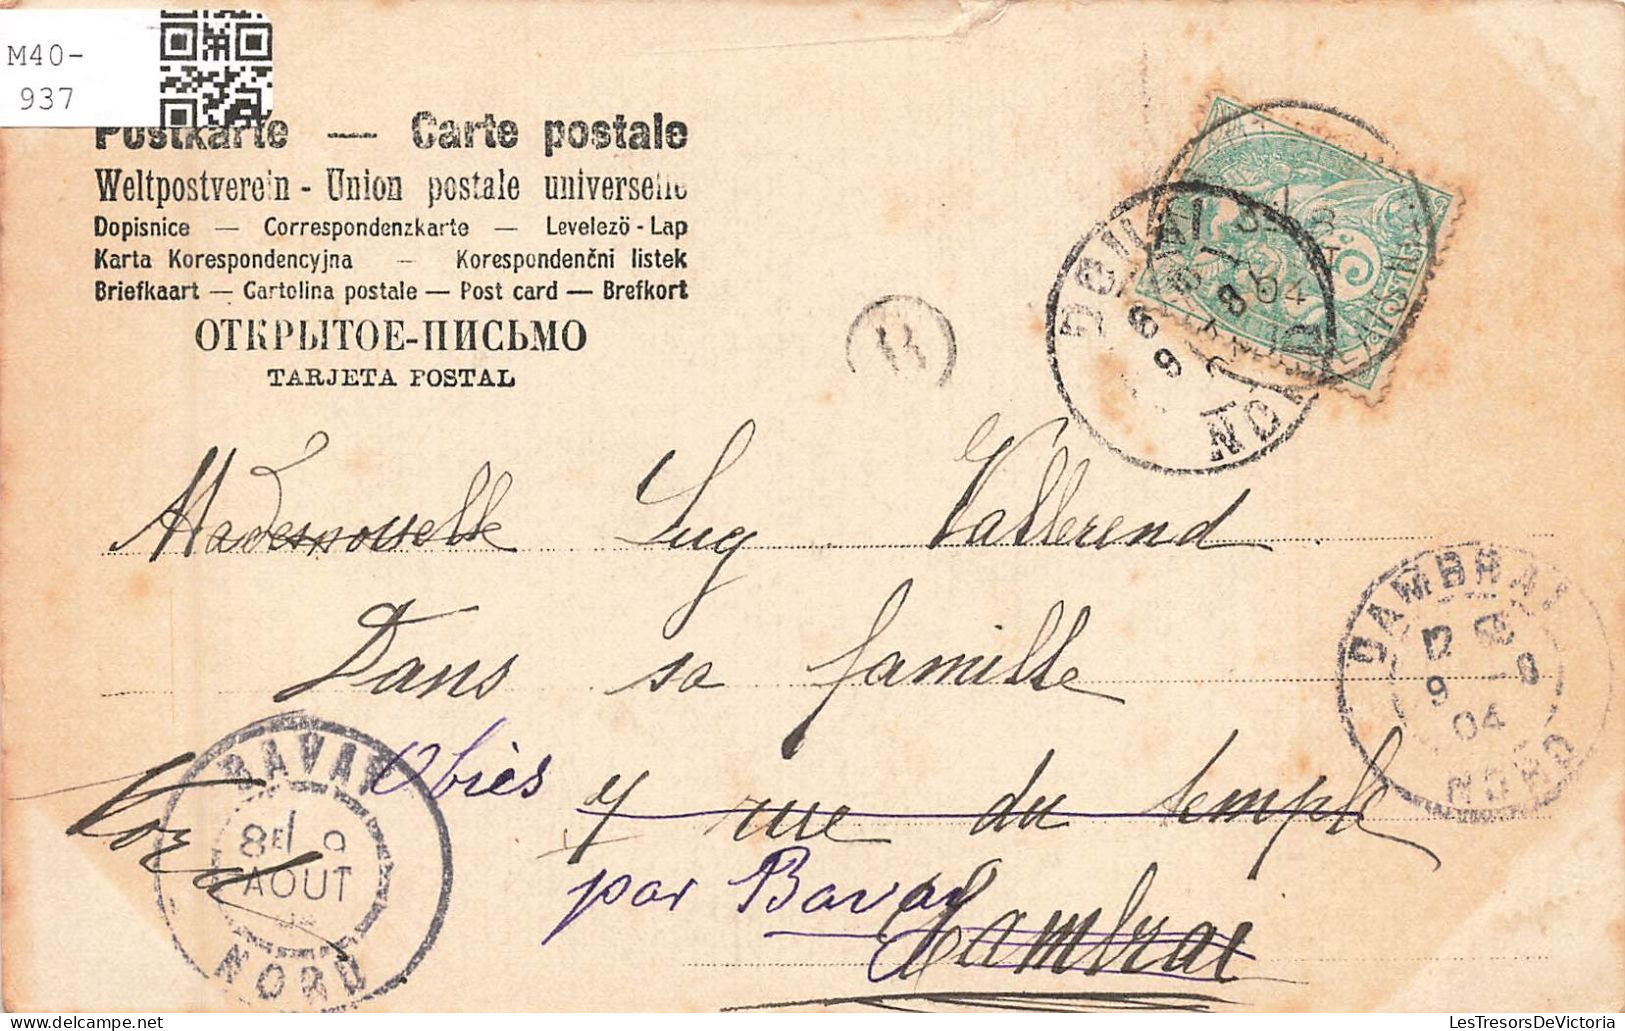 M40-
937
Postkarte — Carte postale
Weltpostverein - Union postale universelle
Dopisnice — Correspondenzkarte — Levelező - Lap
Karta Korespondencyjna — Korespondenčni listek
Briefkaart — Cartolina postale — Post card — Brefkort
ОТКРЫТОЕ-ПИСЬМО
TARJETA POSTAL
DOUAI
NORD
Mademoiselle Lucy Vallerend
Dans sa famille
CAMBRAI
9 - 8
04
NORD
Obies 7 rue du temple
BAVAY
8E 9
AOUT
NORD
par Bavay Cambrai
LesTresorsDeVictoria